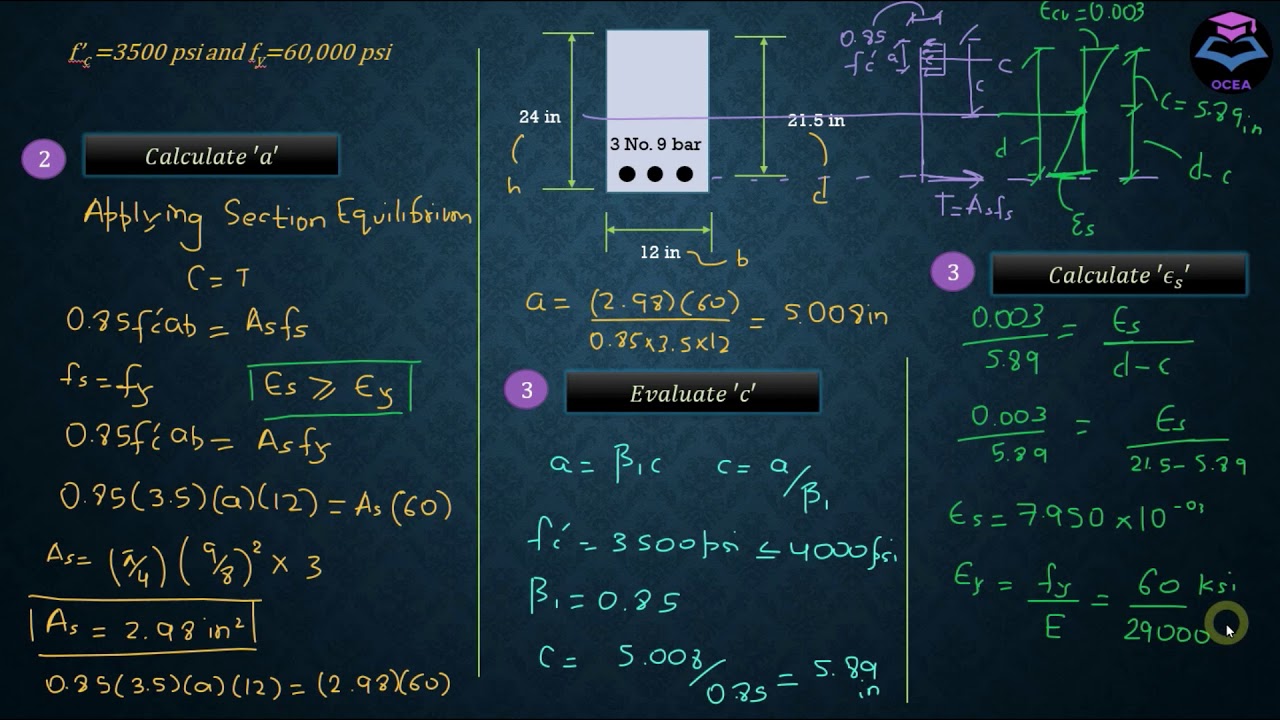 f'c=3500 psi and fy=60,000 psi
2
Calculate 'a'
Applying Section Equilibrium
C = T
0.85f'c ab = Asfs
fs = fy
Es ⩾ Ey
0.85f'c ab = Asfy
0.85(3.5)(a)(12) = As(60)
As = (π/4)(9/8)² × 3
As = 2.98 in²
0.85(3.5)(a)(12) = (2.98)(60)
24 in
h
3 No. 9 bar
21.5 in
d
12 in
b
a = (2.98)(60) / 0.85×3.5×12 = 5.008in
3
Evaluate 'c'
a = β₁c
c = a/β₁
f'c = 3500psi ≤ 4000psi
β₁ = 0.85
C = 5.008/0.85 = 5.89 in
0.85
f'c
a
c
C
T=Asfs
Ecu = 0.003
d
C = 5.89in
d-c
Es
OCEA
3
Calculate 'ϵs'
0.003 / 5.89 = Es / d-c
0.003 / 5.89 = Es / 21.5-5.89
Es = 7.950 × 10⁻⁰³
Ey = fy / E = 60 ksi / 29000